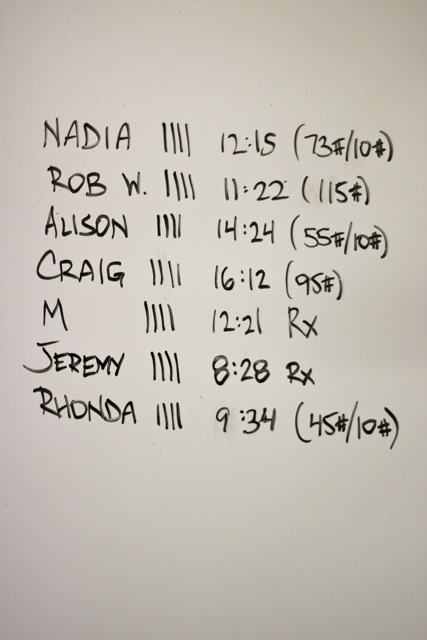 NADIA |||| 12:15 (73#/10#)
ROB W. |||| 11:22 (115#)
ALISON |||| 14:24 (55#/10#)
CRAIG |||| 16:12 (95#)
M |||| 12:21 Rx
JEREMY |||| 8:28 Rx
RHONDA |||| 9:34 (45#/10#)